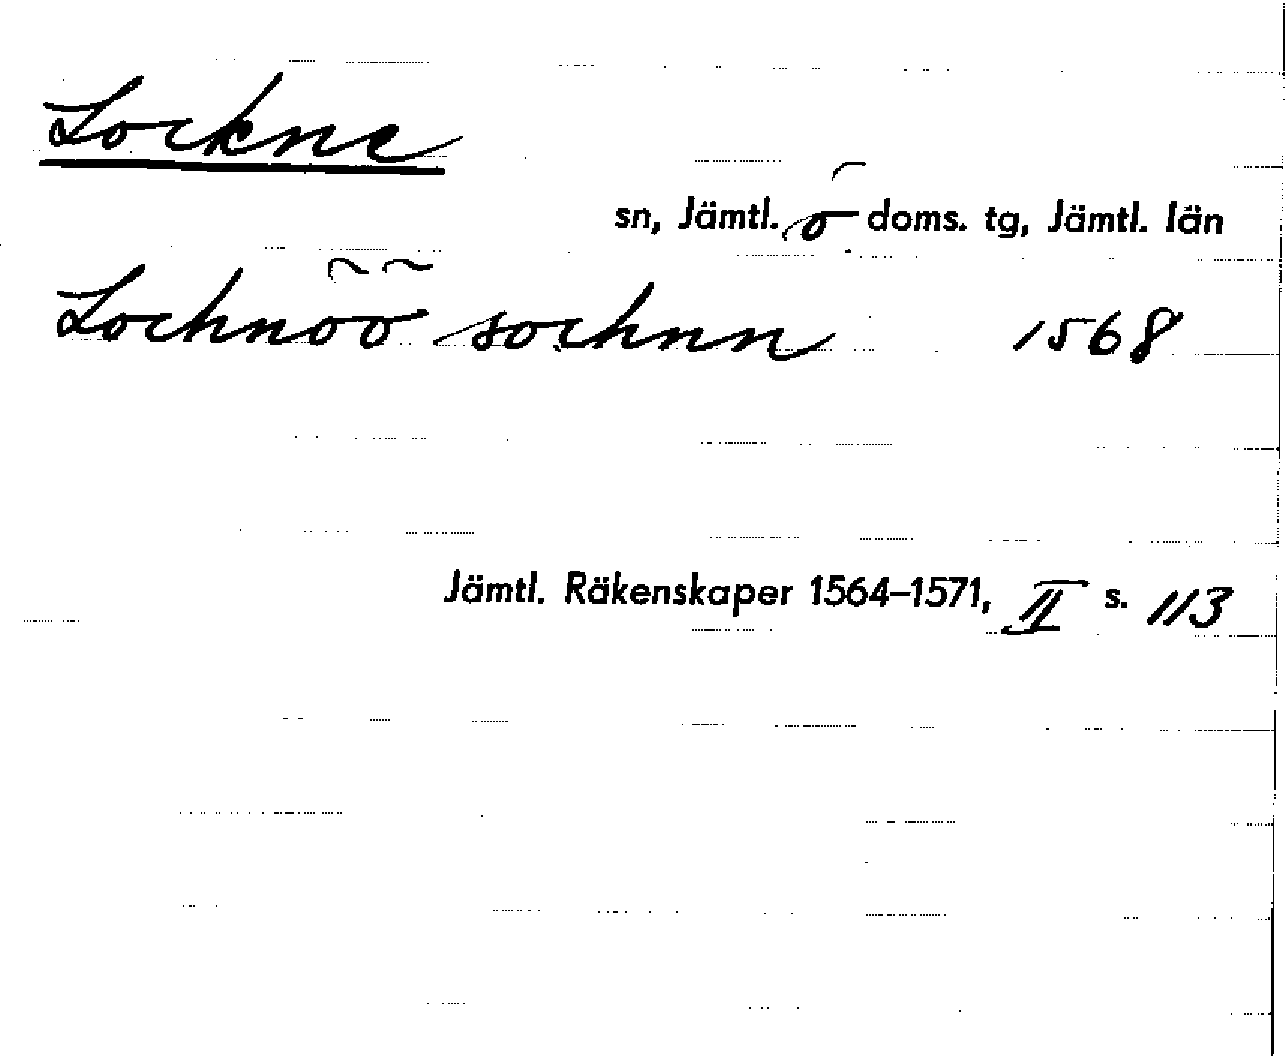 Lockne
sn, Jämtl. ö doms. tg, Jämtl. län
Lochnöö sochnn 1568
Jämtl. Räkenskaper 1564–1571, II s. 113